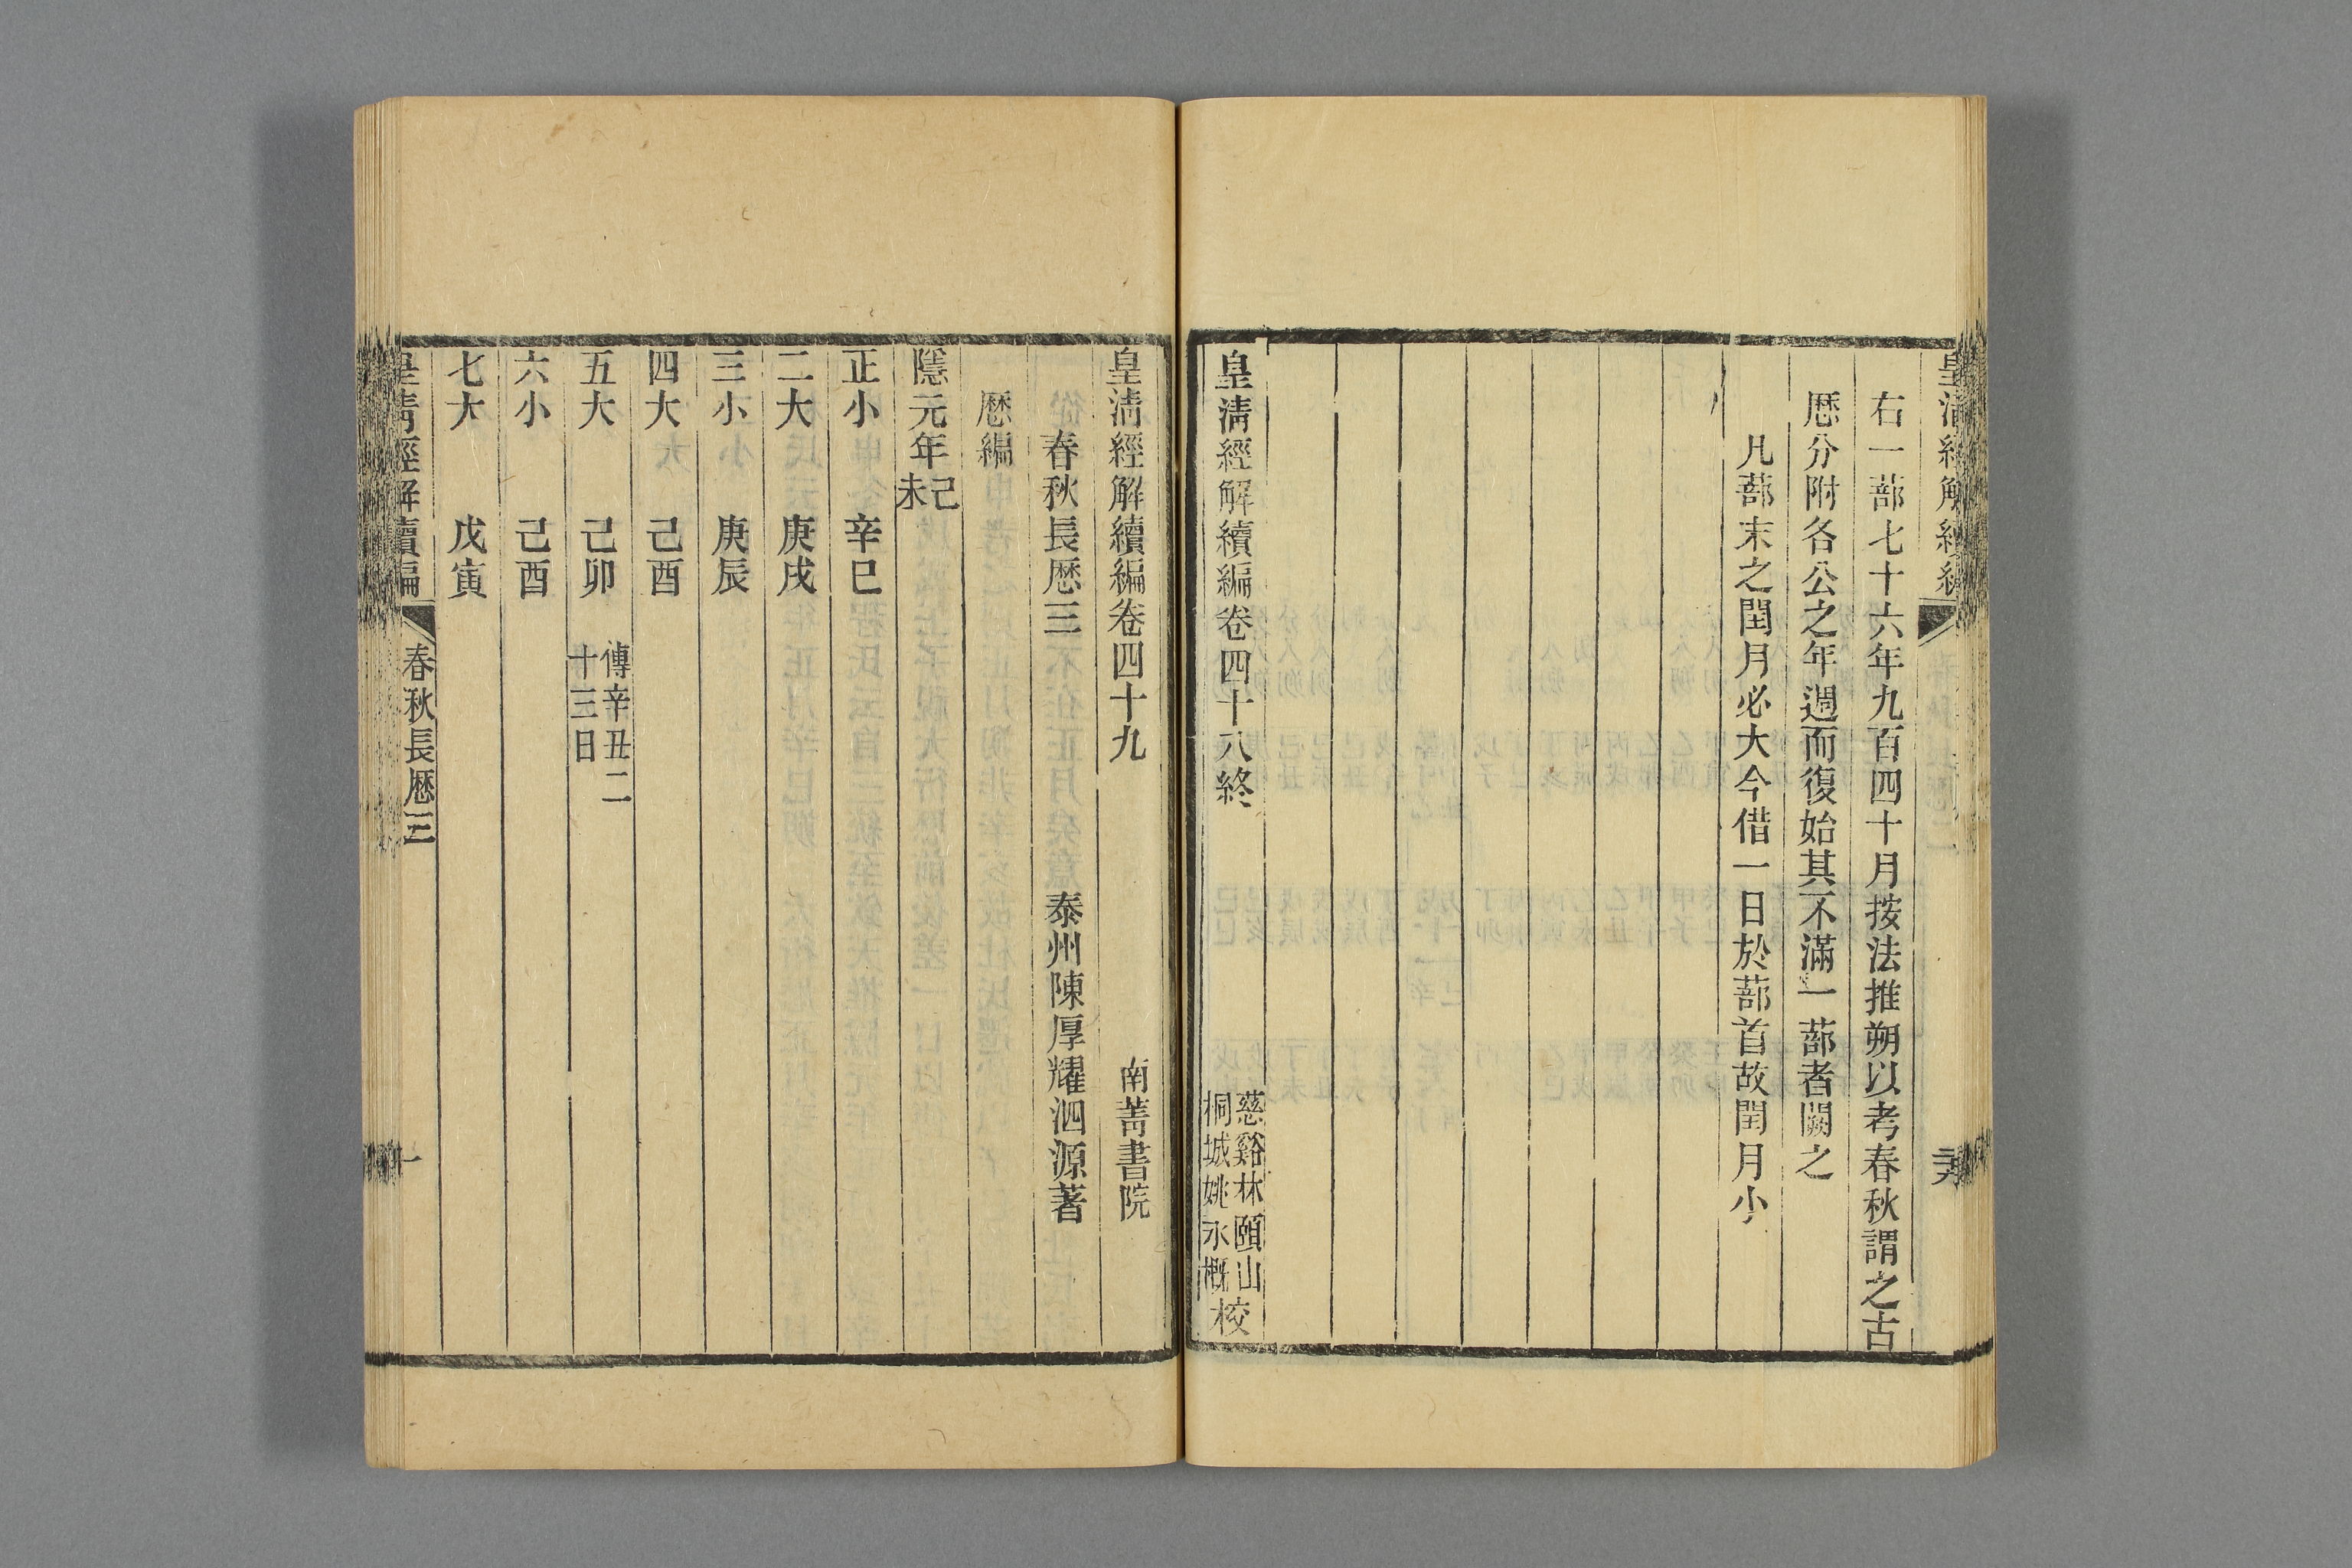 右一蔀七十六年九百四十月按法推朔以考春秋謂之古
厯分附各公之年週而復始其不滿一蔀者闕之
凡蔀末之閏月必大今借一日於蔀首故閏月小
皇淸經解續編卷四十八終
慈谿林頤山
桐城姚永概
校
皇淸經解續編卷四十九
南菁書院
春秋長厯三
泰州陳厚耀泗源著
厯編
隱元年己未
正小 辛巳
二大 庚戌
三小 庚辰
四大 己酉
五大 己卯 傳辛丑二十三日
六小 己酉
七大 戊寅
皇淸經解續編 春秋長厯三 一